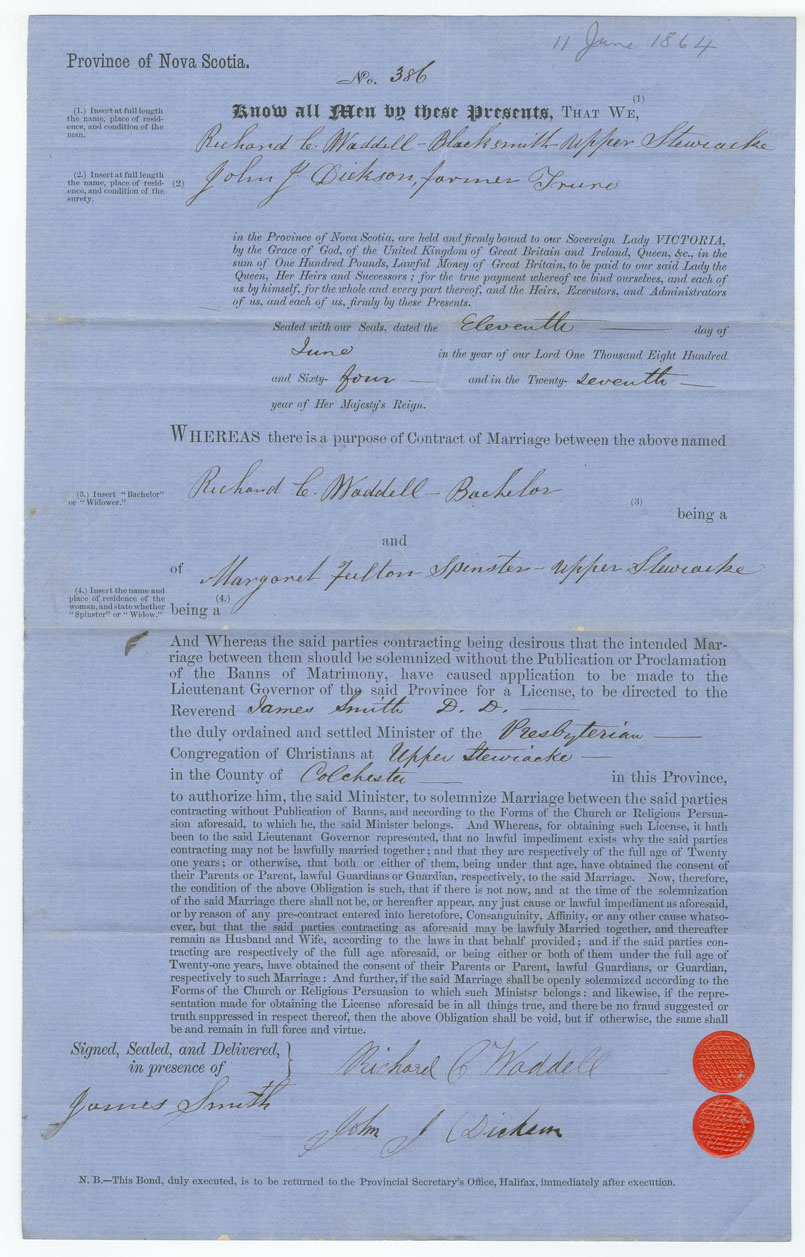 11 June 1864
Province of Nova Scotia.
No. 386
(1.) Insert at full length
the name, place of resid-
ence, and condition of the
man.
Know all Men by these Presents, THAT WE, (1)
Richard C. Waddell - Blacksmith - Upper Stewiacke
(2.) Insert at full length
the name, place of resid-
ence, and condition of the
surety.
(2) John J. Dickson, farmer Truro
in the Province of Nova Scotia, are held and firmly bound to our Sovereign Lady VICTORIA,
by the Grace of God, of the United Kingdom of Great Britain and Ireland, Queen, &c., in the
sum of One Hundred Pounds, Lawful Money of Great Britain, to be paid to our said Lady the
Queen, Her Heirs and Successors ; for the true payment whereof we bind ourselves, and each of
us by himself, for the whole and every part thereof, and the Heirs, Executors, and Administrators
of us, and each of us, firmly by these Presents.
Sealed with our Seals, dated the Eleventh day of
June in the year of our Lord One Thousand Eight Hundred
and Sixty- four and in the Twenty- seventh
year of Her Majesty's Reign.
WHEREAS there is a purpose of Contract of Marriage between the above named
(3.) Insert "Bachelor"
or "Widower."
Richard C. Waddell - Bachelor
(3)
being a
and
of Margaret Fulton - Spinster - Upper Stewiacke
(4.) Insert the name and
place of residence of the
woman, and state whether
"Spinster" or "Widow."
(4.)
being a
And Whereas the said parties contracting being desirous that the intended Mar-
riage between them should be solemnized without the Publication or Proclamation
of the Banns of Matrimony, have caused application to be made to the
Lieutenant Governor of the said Province for a License, to be directed to the
Reverend James Smith D. D.
the duly ordained and settled Minister of the Presbyterian
Congregation of Christians at Upper Stewiacke
in the County of Colchester in this Province,
to authorize him, the said Minister, to solemnize Marriage between the said parties
contracting without Publication of Banns, and according to the Forms of the Church or Religious Persua-
sion aforesaid, to which he, the said Minister belongs. And Whereas, for obtaining such License, it hath
been to the said Lieutenant Governor represented, that no lawful impediment exists why the said parties
contracting may not be lawfully married together ; and that they are respectively of the full age of Twenty
one years ; or otherwise, that both or either of them, being under that age, have obtained the consent of
their Parents or Parent, lawful Guardians or Guardian, respectively, to the said Marriage. Now, therefore,
the condition of the above Obligation is such, that if there is not now, and at the time of the solemnization
of the said Marriage there shall not be, or hereafter appear, any just cause or lawful impediment as aforesaid,
or by reason of any pre-contract entered into heretofore, Consanguinity, Affinity, or any other cause whatso-
ever, but that the said parties contracting as aforesaid may be lawfuly Married together, and thereafter
remain as Husband and Wife, according to the laws in that behalf provided ; and if the said parties con-
tracting are respectively of the full age aforesaid, or being either or both of them under the full age of
Twenty-one years, have obtained the consent of their Parents or Parent, lawful Guardians, or Guardian,
respectively to such Marriage : And further, if the said Marriage shall be openly solemnized according to the
Forms of the Church or Religious Persuasion to which such Ministsr belongs : and likewise, if the repre-
sentation made for obtaining the License aforesaid be in all things true, and there be no fraud suggested or
truth suppressed in respect thereof, then the above Obligation shall be void, but if otherwise, the same shall
be and remain in full force and virtue.
Signed, Sealed, and Delivered,
in presence of
Richard C Waddell
James Smith
John J Dickson
N. B.—This Bond, duly executed, is to be returned to the Provincial Secretary's Office, Halifax, immediately after execution.